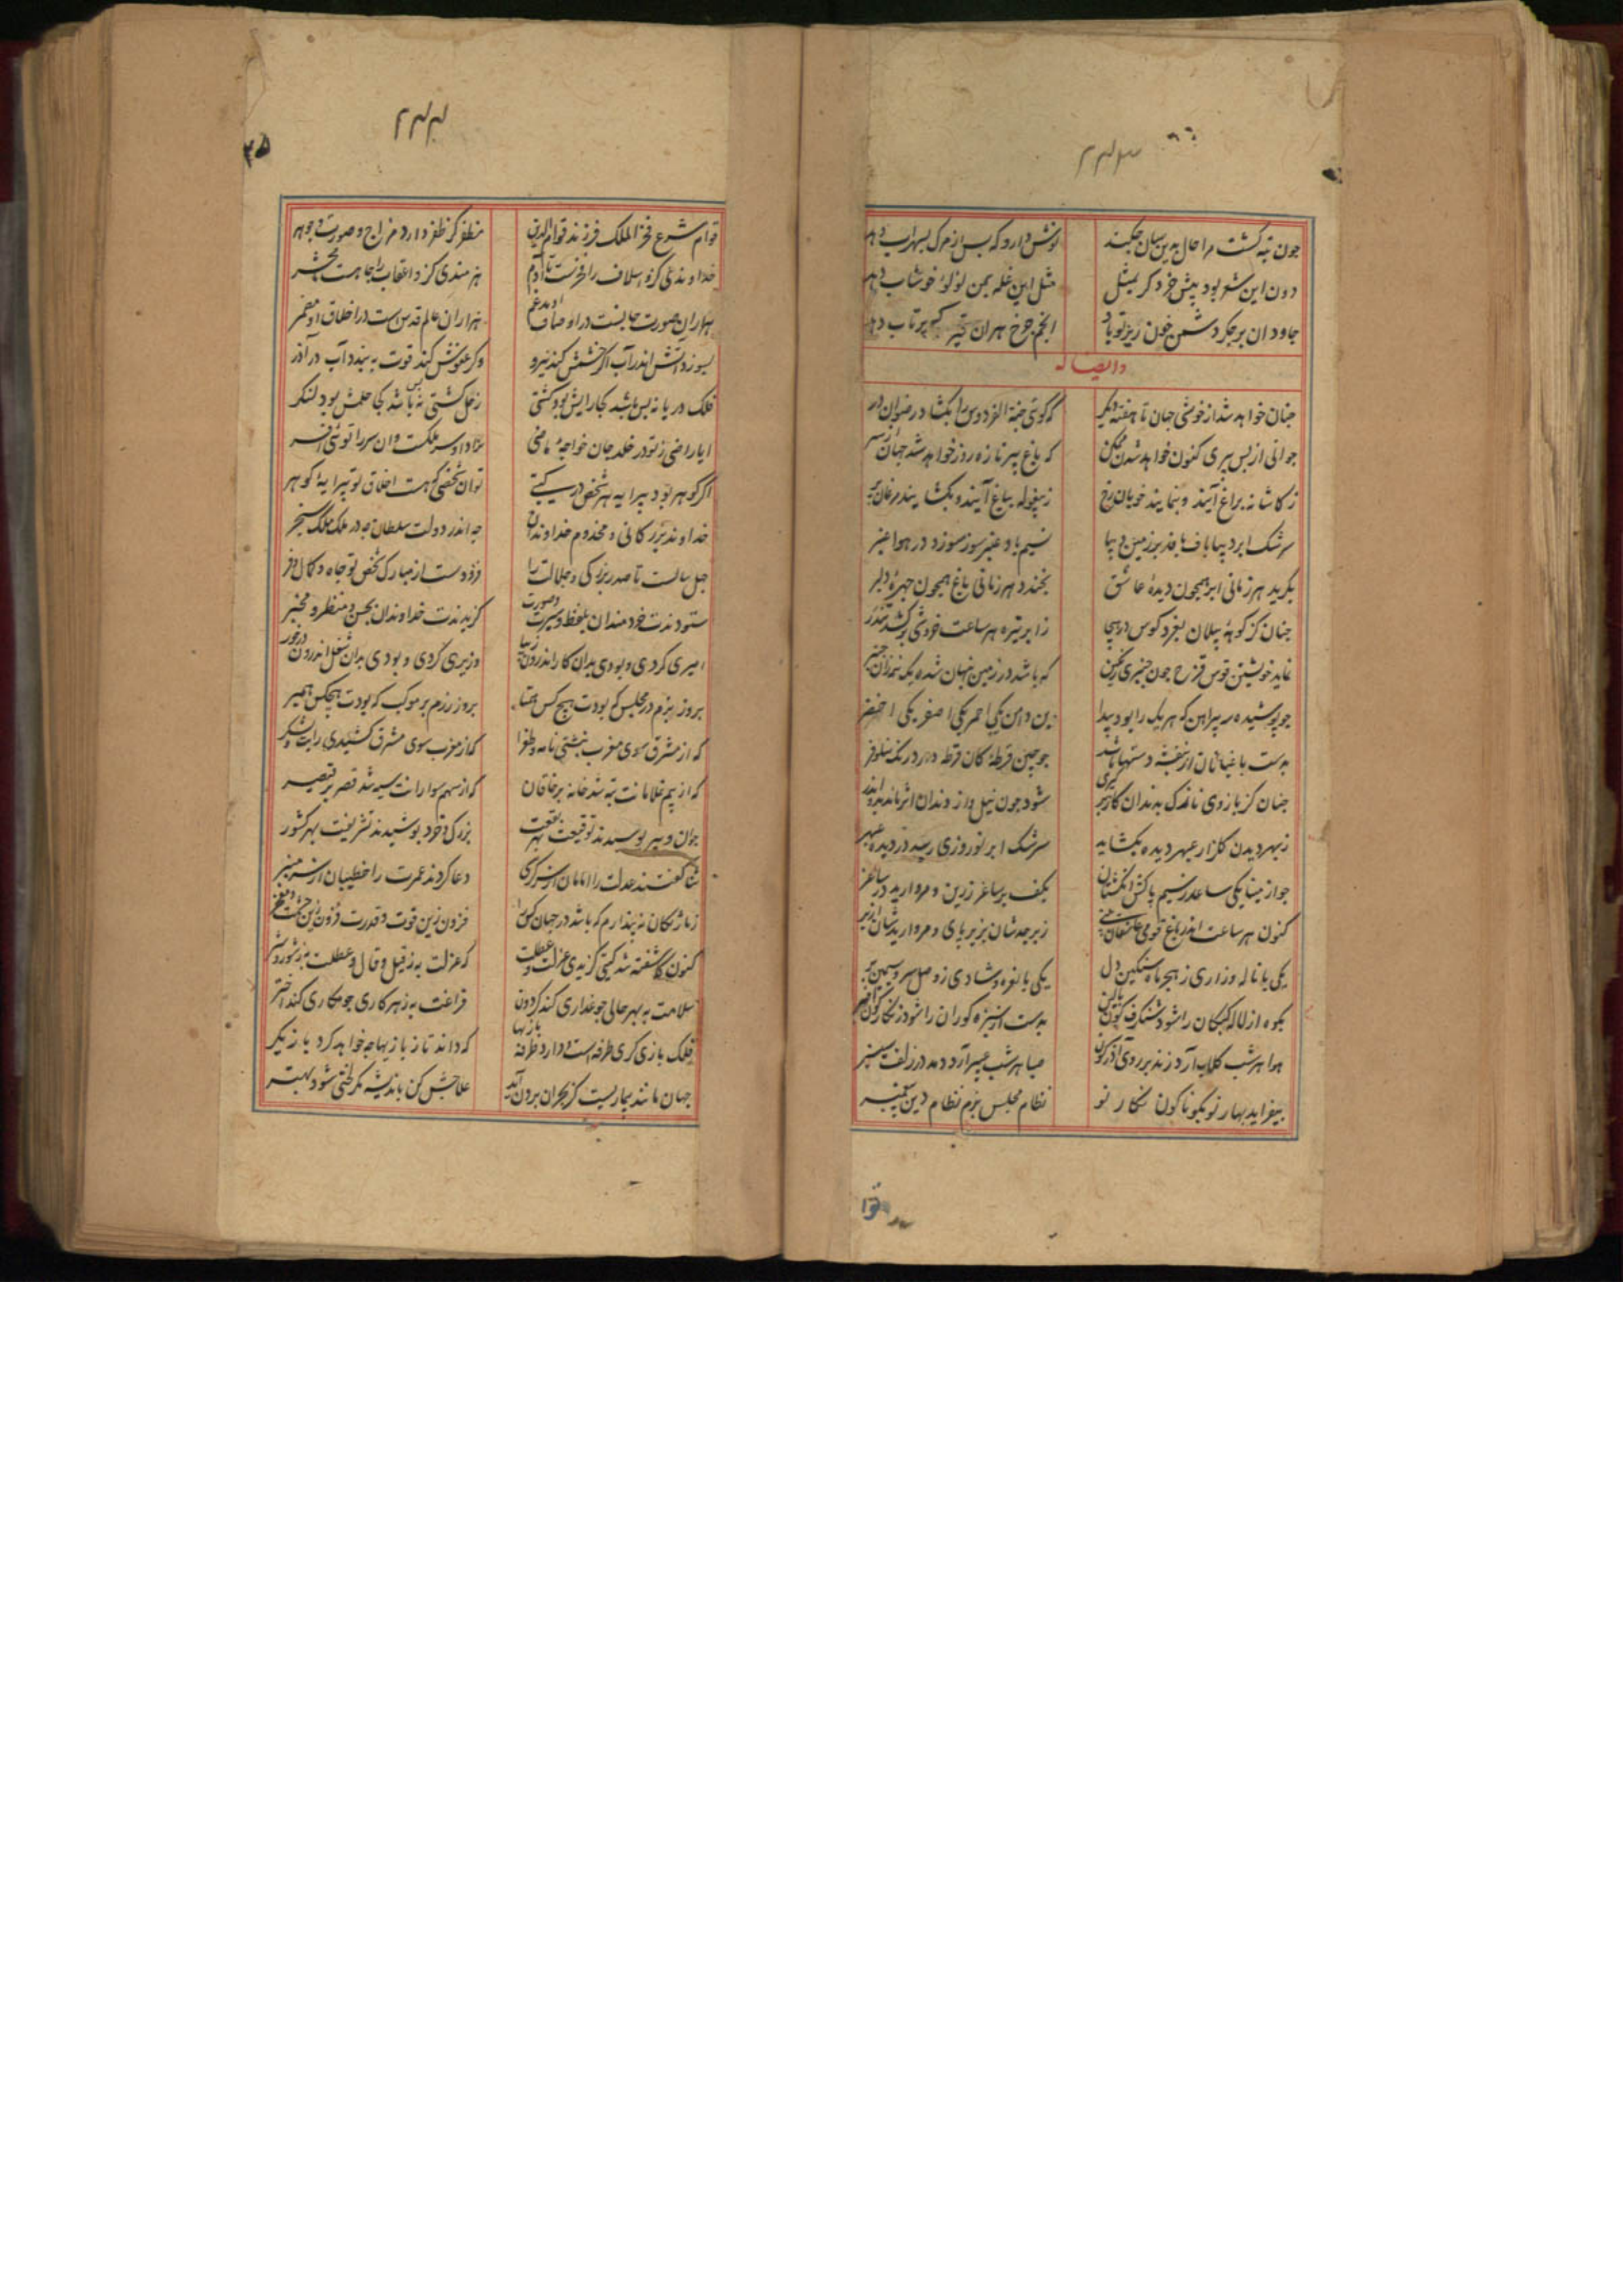 ۲۴۴۳
چون تبه گشت مرا حال بدین سان چکنند نوش دارو که پس از مرگ بسهراب دهد
دون این شعر بود پیش خرد گر بمثل مثل این غله بمن لولو خوشاب دهد
جاودان بر جگر دشمن خون ریز تو باد انجم چرخ هران تیر که پرتاب دهد
و ایضا له
جنان خواهد شد از خوشی جهان تا هفته دیگر که گوئی جنة الفردوس را بکشاد رضوان در
جوانی از پس پیری کنون خواهد شدن ممکن که باغ پیر تازه روز خواهد شد جهان از سر
ز کاشانه براغ آیند و بنمایند خوبان رخ ز بیغوله بباغ آیند و بکشایند مرغان پر
سرشک ابر دیبا باف بافد بر زمین دیبا نسیم باد عنبر سوز سوزد در هوا عنبر
بگرید هر زمانی ابر همچون دیده عاشق بخندد هر زمانی باغ همچون چهره دلبر
چنان کز کوهه پیلان بغرد کوس در هیجا ز ابر تیره هر ساعت خروشی بر کشد تندر
نماید خویشتن قوس قزح چون چنبری رنگین که باشد در زمین پنهان شده یک نیمه زان چنبر
چو پوشیده سه پیراهن که هر یک را بود پیدا بن دامن یکی احمر یکی اصفر یکی اخضر
بدست باغبانان از بنفشه دستها باشد چو چین قرطه کان قرطه دارد رنگ نیلوفر
چنان کز بازوی نازک بدندان گاز برگیری شود چون نیل و از دندان اثر ماند بدو اندر
ز بهر دیدن گلزار عبهر دیده بکشاید سرشک ابر نوروزی رسد در دیده عبهر
چو از مینا یکی ساعد ز سیم پاکش انگشتان بکف بر ساغر زرین و مروارید در ساغر
کنون هر ساعت اندر باغ قومی عاشقان بینی زبرجدشان بزیر پای و مرواریدشان از بر
یکی با ناله و زاری ز هجر ماه سنگین دل یکی با نعره و شادی ز وصل سرو سیمین بر
بکوه از لاله کبکان را شود شنگرف گون بالین بدشت از سبزه گوران را شود زنگارگون بستر
هوا هر شب گلاب آرد زند بر روی آذرگون صبا هر شب عبیر آرد دمد در زلف سیسنبر
بیفزاید بهار نو بگوناگون نگار نو نظام مجلس بزم نظام دین پیغمبر
۲۴۴۴
قوام شرع فخر الملک فرزند قوام الدین مظفر کز ظفر دارد مزاج و صورت و جوهر
خداوندی کزو اسلاف را فخرست تا آدم هنرمندی کزو اعقاب را جاهست تا محشر
هزاران صورت جانیست در اوصاف او مدغم هزاران عالم قدس است در اخلاق او مضمر
بسوزد آتش اندر آب اگر خشمش کند نیرو وگر عفوش کند قوت ببندد آب در آذر
فلک دریا نه بس باشد کجا رایش بود کشتی زحل کشتی نه بس باشد کجا حلمش بود لنگر
ایا راضی ز تو در خلد جان خواجه ماضی سزا داد و سر ملکت و ان سر را توئی افسر
اگر گوهر بود پیرایه هر شخص در گیتی تو ان شخصی که هست اخلاق تو پیرایه گوهر
خداوند بزرگانی و مخدوم خداوندان چه اندر دولت سلطان چه در ملک ملک سنجر
چل سالست تا صدر بزرگی و جلالت را فزودست از مبارک شخص تو جاه و کمال و فر
ستودندت خردمندان بلفظ و سیرت و صورت گزیدندت خداوندان بحسن و منظر و مخبر
امیری کردی و بودی بدان کار اندرون زیبا وزیری کردی و بودی بدان شغل اندرون درخور
بروز بزم در مجلس که بودت هیچ کس همتا بروز رزم بر موکب که بودت هیچکس همبر
که از مشرق سوی مغرب نبشتی نامه و طغرا که از مغرب سوی مشرق کشیدی رایت و لشکر
که از بیم غلامانت تبه شد خانه بر خاقان که از سهم سوارانت سیه شد قصر بر قیصر
جوان و پیر بوسیدند توقیعت بهر بقعت بزرگ و خرد پوشیدند تشریفت بهر کشور
ثنا گفتند عدلت را امامان از سر کرسی دعا کردند عمرت را خطیبان از سر منبر
فزون زین قوت و قدرت فزون زین حشمت و مفخر
کنون کاشفته شد گیتی گزیدی عزلت و عطلت که عزلت به ز قیل و قال و عطلت به ز شور و شر
سلامت به بهر حالی چو غداری کند گردون فراغت به ز هر کاری چو مکاری کند اختر
فلک بازی گری طرفه است و دارد طرفه بازیها که داند تا ز بازیها چه خواهد کرد بازیگر
جهان مانند بیماریست کز بحران برون آید علاجش کن باندیشه مگر لختی شود بهتر